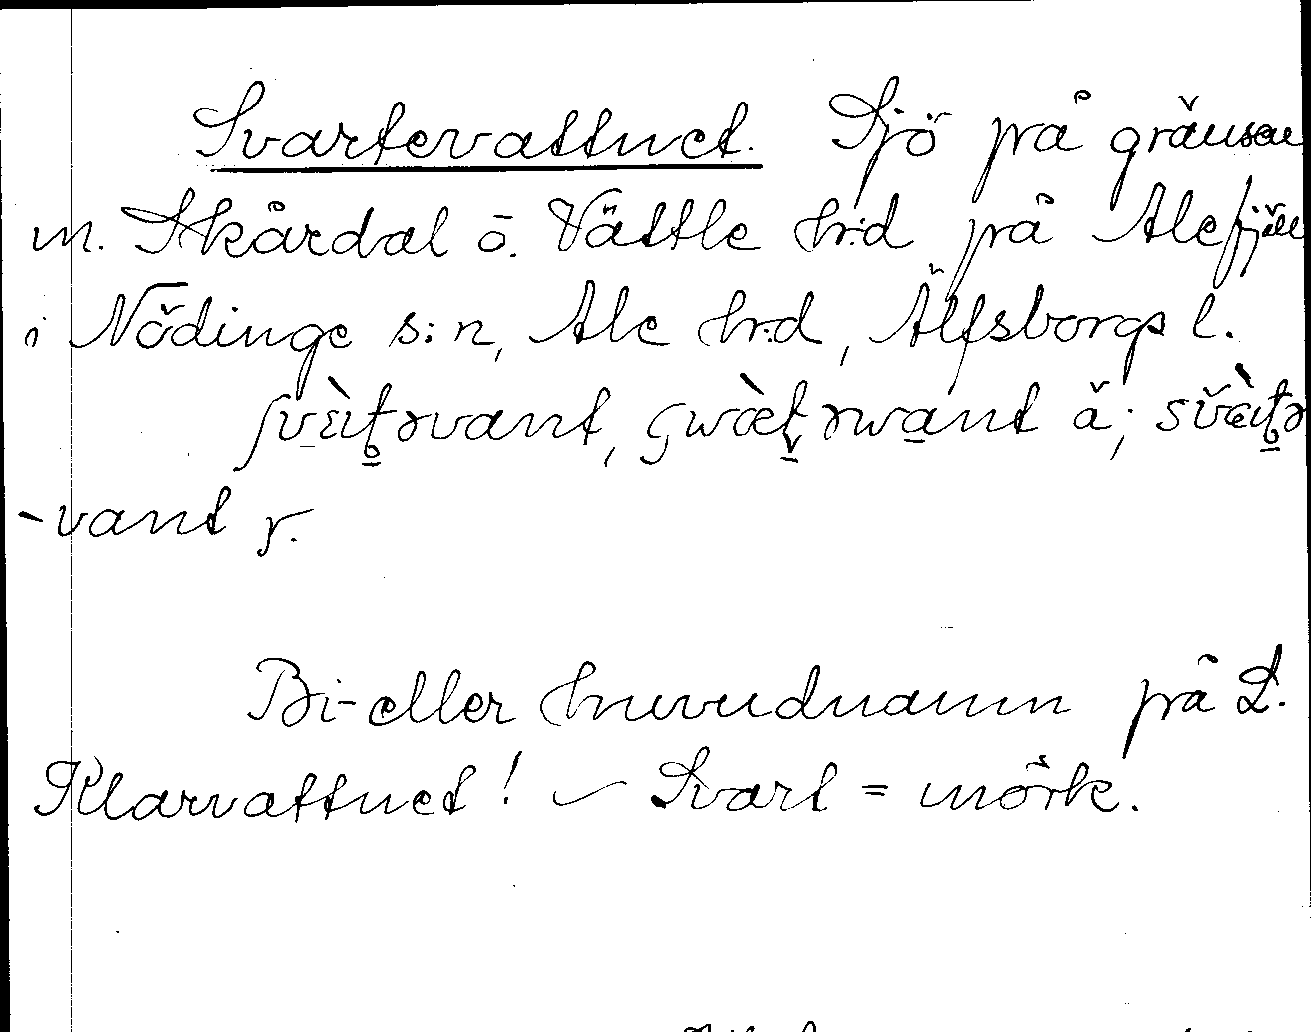 Svartevattnet. Sjö på gränsen
m. Skårdal o. Vättle hrd på Alefjäll
i Nödinge s:n, Ale hrd, Älfsborgs l.
ä;
-vant y.
Bi- eller huvudnamn på L.
Klarvattnet! – Svart = mörk.